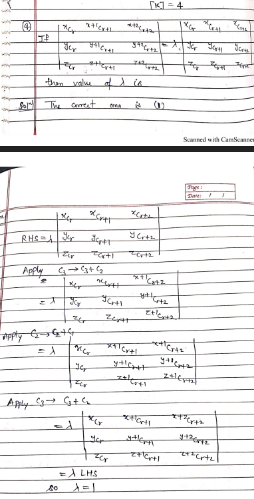 [K] = 4
④ If | xCr x+1Cr+1 x+2Cr+2 | = λ | xCr xCr+1 xCr+2 |
| yCr y+1Cr+1 y+2Cr+2 | | yCr yCr+1 yCr+2 |
| zCr z+1Cr+1 z+2Cr+2 | | zCr zCr+1 zCr+2 |
then value of λ is
Solⁿ) The correct one is (B)
Scanned with CamScanner
Page:
Date: / /
| xCr xCr+1 xCr+2 |
RHS = λ | yCr yCr+1 yCr+2 |
| zCr zCr+1 zCr+2 |
Apply C3 → C3+C2
= λ | xCr xCr+1 x+1Cr+2 |
| yCr yCr+1 y+1Cr+2 |
| zCr zCr+1 z+1Cr+2 |
Apply C2 → C2+C1
= λ | xCr x+1Cr+1 x+1Cr+2 |
| yCr y+1Cr+1 y+1Cr+2 |
| zCr z+1Cr+1 z+1Cr+2 |
Apply C3 → C3+C2
= λ | xCr x+1Cr+1 x+2Cr+2 |
| yCr y+1Cr+1 y+2Cr+2 |
| zCr z+1Cr+1 z+2Cr+2 |
= λ LHS
so λ = 1